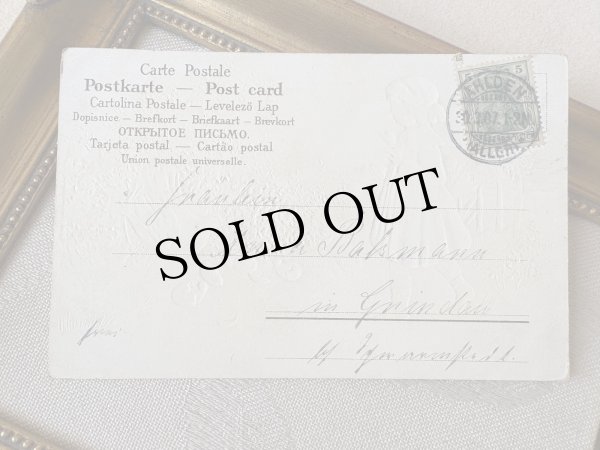 Carte Postale
Postkarte — Post card
Cartolina Postale — Levelező Lap
Dopisnice — Brefkort — Briefkaart — Brevkort
ОТКРЫТОЕ ПИСЬМО.
Tarjeta postal — Cartão postal
Union postale universelle.
5 5
AHLDEN
(ALLER)
Fräulein
SOLD OUT
in Grindau
frei
b/ Schwarmstedt.